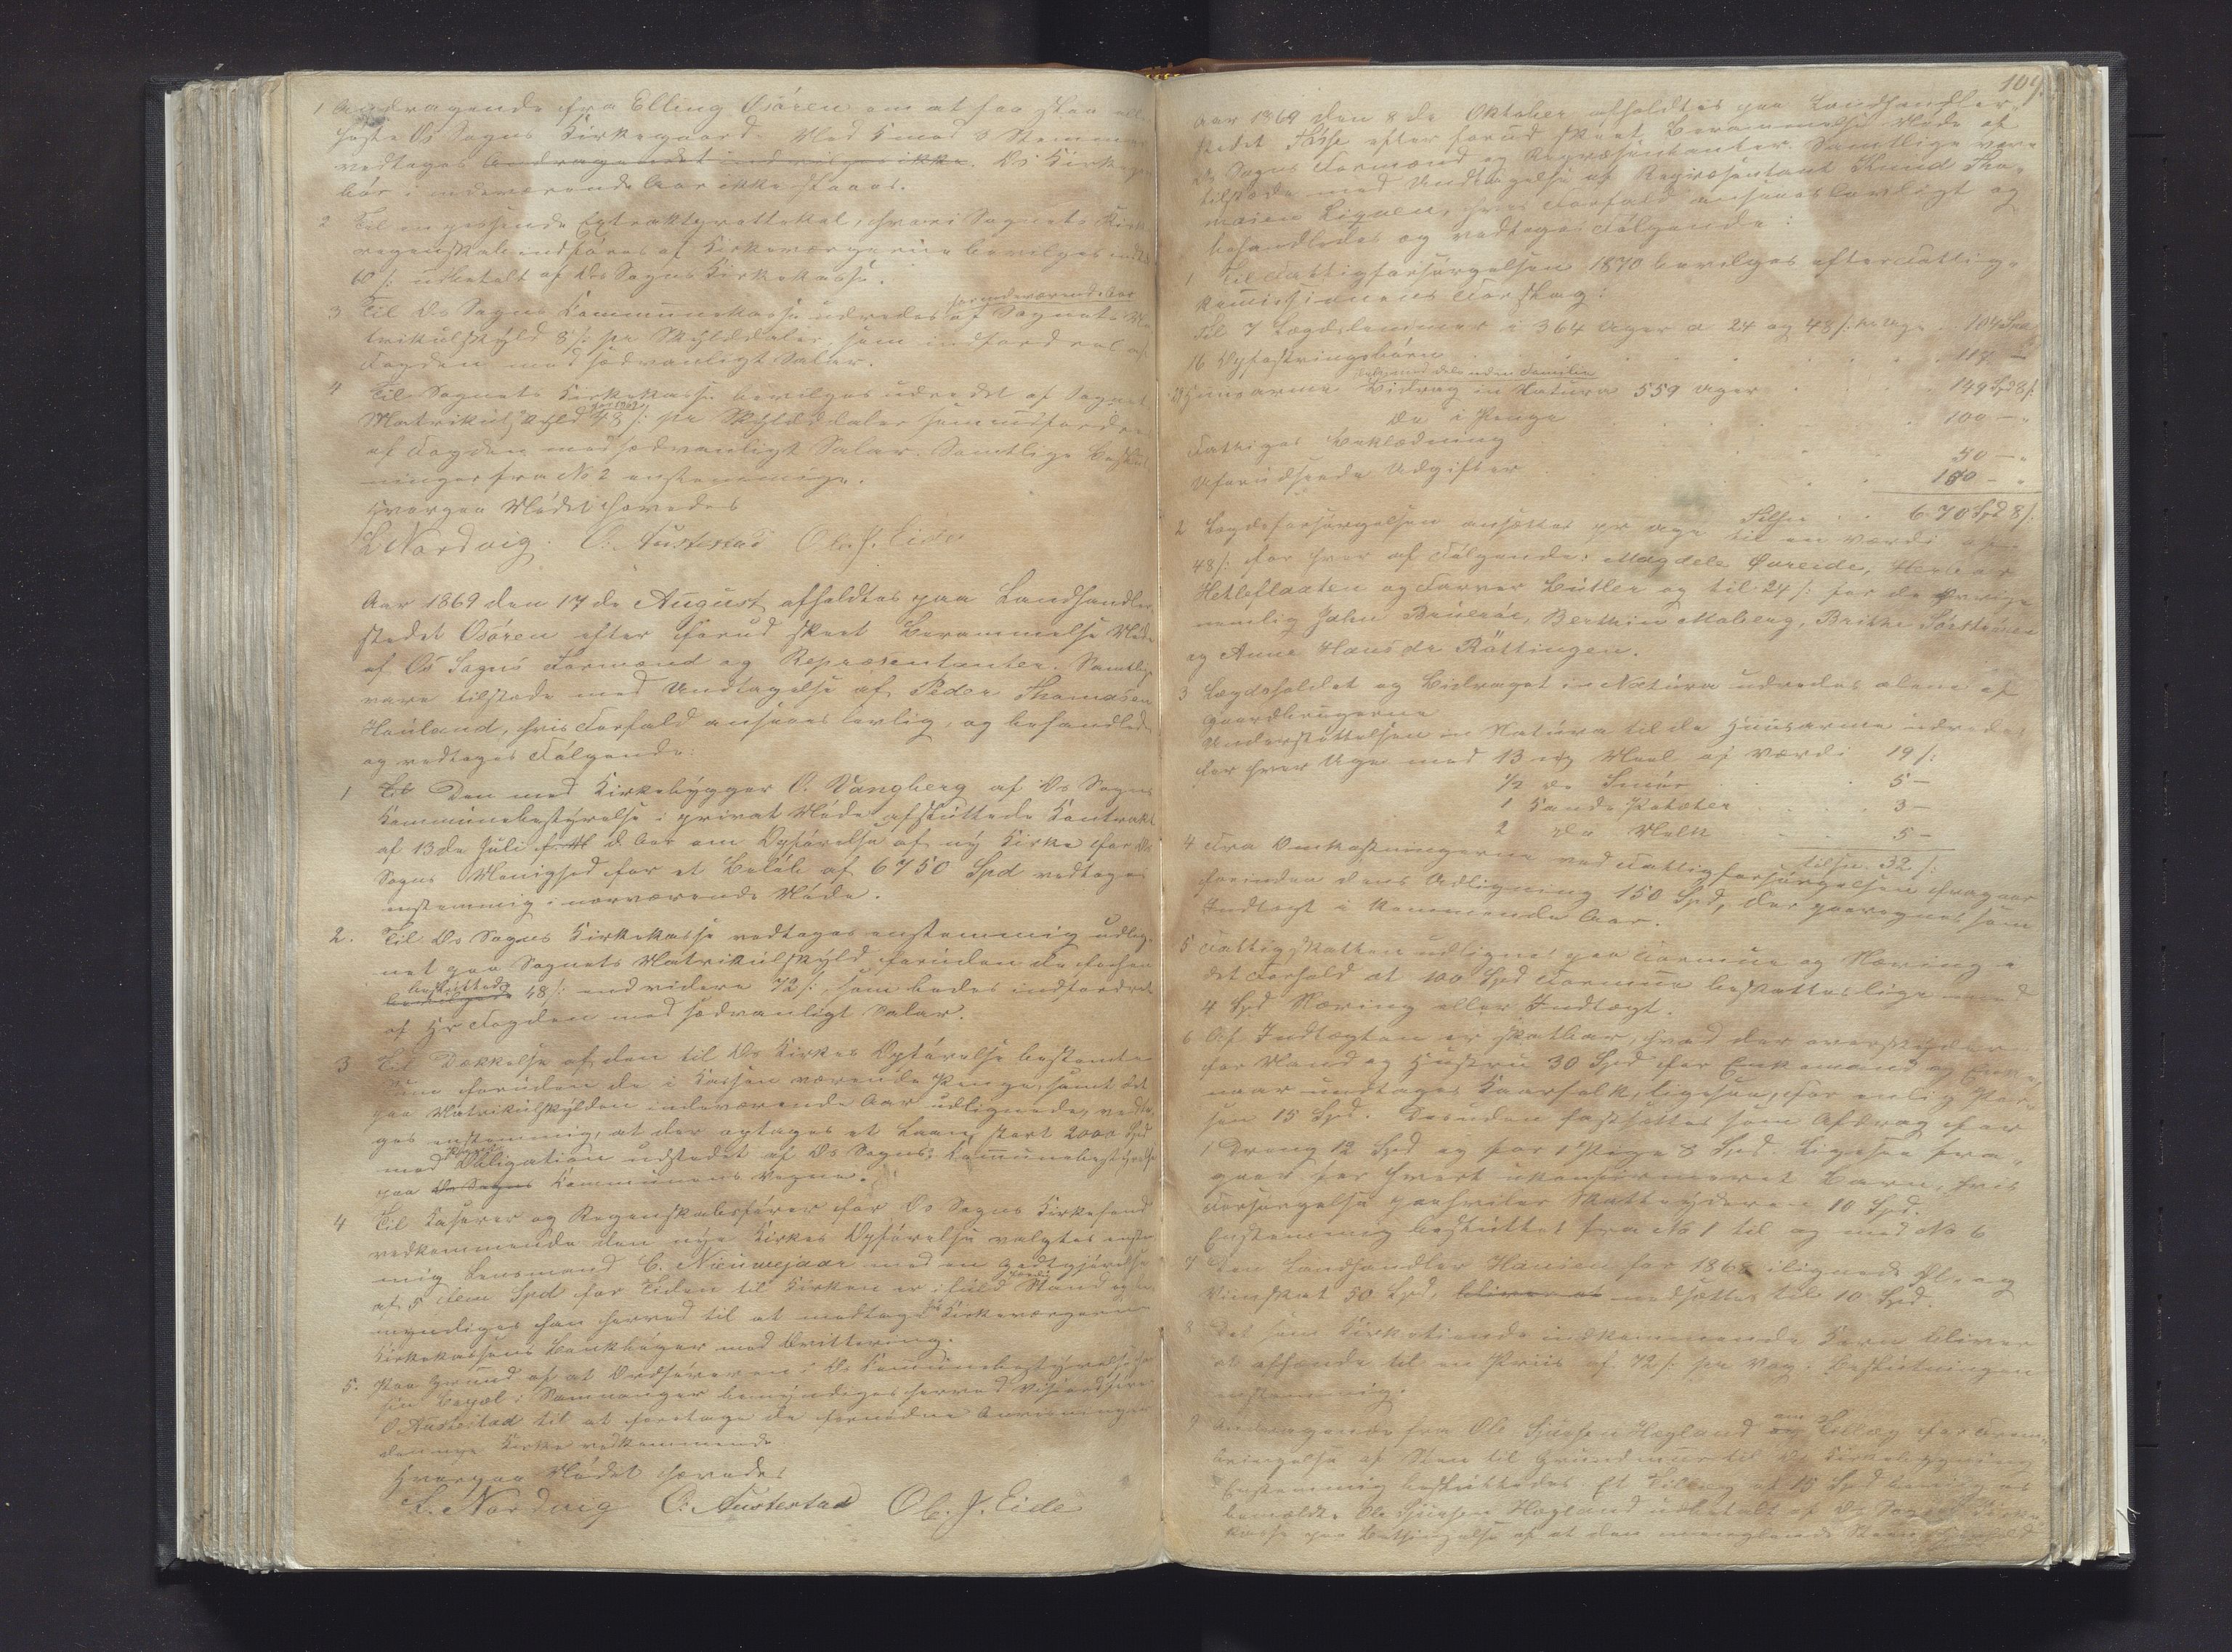 1 Andragende fra Elling Osøren om at faa slaa all
høste Os Sogns Kirkegaard. Med 5 mod 3 Stemmer
vedtages Andragendet indvilges ikke. Os Kirkegaard
bør i indeværende Aar ikke slaaes.
2 Til en passende Extraktprottekol, hvori Sognets Kirke
regnskab indføres af Kirkeværgerne bevilges
60 /: udbetalt af Os Sogns Kirkekasse.
for indeværende Aar
3 Til Os Sogns Kommunekasse udredes af Sognets Ma
trikulskyld 8 /: pr Skylddaler, som indfordres af
Fogden mod sædvanligt Salær.
4 Til Sognets Kirkekasse bevilges udredet af Sognets
Matrikulskyld 48 /: pr Skylddaler som indfordres
af Fogden mod sædvanligt Salær. Samtlige Beslut
ninger fra No 2 enstemmige.
Hvorpaa Mødet hævedes
L Nordvig. O. Austestad Ole J. Eide
Aar 1869 den 17de August afholdtes paa Landhandler
stedet Osøren efter forud skeet Berammelse Møde
af Os Sogns Formænd og Repræsentanter. Samtlige
vare tilstede med Undtagelse af Peder Thomasen
Hauland, hvis Forfald ansaaes lovlig, og behandledes
og vedtoges Følgende:
1 Den med Kirkebygger O. Vangberg af Os Sogns
Kommunebestyrelse i privat Møde afsluttede Kontrakt
af 13de Juli d. Aar om Opførelse af ny Kirke for Os
Sogns Menighed for et Beløb af 6750 Spd vedtoges
enstemmig i nærværende Møde.
2. Til Os Sogns Kirkekasse vedtoges enstemmig udlig
net paa Sognets Matrikulskyld foruden de forhen
besluttede
bevilgede 48 /: endvidere 72 /:, som bedes indfordret
af Hr Fogden mod sædvanligt Salær.
3 Til Dækkelse af den til Os Kirkes Opførelse bestemte
Sum foruden de i Kassen værende Penge, samt det
paa Matrikulskylden indeværende Aar udlignede, vedto
ges enstemmig, at der optages et Laan, stort 2000 Spd
mod Obligation udstedet af Os Sogns Kommunebestyrelse
paa Os Sogns Kommunens Vegne.
4 Til Kaserer og Regnskabsfører for Os Sogns Kirkefond
vedkommende den nye Kirkes Opførelse valgtes enstem
mig Lensmand C. Nieuwejaar med en Godtgjørelse
af 5 fem Spd for Tiden til Kirken er i fuld færdig Stand og be
myndiges han herved til at modtage fra Kirkeværgerne
Kirkekassens Bankbøger mod Kvittering.
5. Paa Grund af at Ordføreren i Os Kommunebestyrelse har
sin Bopæl i Samnanger bemyndiges herved Viseordfører
O Austestad til at foretage de fornødne Anvisninger
den nye Kirke vedkommende
Hvorpaa Mødet hævedes
L. Nordvig O: Austestad Ole. J. Eide
109.
Aar 1869 den 8de Oktober afholdtes paa Landhandler
stedet efter forud skeet Berammelse Møde af
Os Sogns Formænd og Repræsentanter. Samtlige vare
tilstede med Undtagelse af Repræsentant Knud Tho
masen Lignen, hvis Forfald ansaaes lovligt og
behandledes og vedtoges Følgende:
1 Til Fattigforsørgelsen 1870 bevilges efter Fattig
kommissionens Forslag:
Til 7 Lægdslemmer i 364 Uger a 24 og 48 /: pr Uge . 104 Spd
16 Opfostringsbørn . . . 117 —
Huusarme Bidrag in Natura 559 Uger . 149 Spd 8 /:
Do i Penge . . . 100 — "
Fattiges Beklædning . . . 50 — "
Uforudseede Udgifter . . . 150 — "
Tilsm . . 670 Spd 8 /:
2 Lægdsforsørgelsen ansættes pr Uge til en Værdi af
48 /: for hver af Følgende: Magdele Øvreide,
Hetleflaaten og Farver Butler og til 24 /: for de øvrige
nemlig John Bruerøe, Berthin Moberg, Brithe
og Anne Hansdr Røttingen.
3 Lægdsholdet og Bidraget in Natura udredes alene af
Gaardbrugerne
Understøttelsen in Natura til de Huusarme udredes
for hver Uge med 13 Meel af Værdi 19 /:
1/2 do Smør . 5 —
1 Kande Poteter . . . 3 —
2 do Melk . . 5 —
tilsm. 32 /:
4 Fra Omkostningerne ved Fattigforsørgelsen fragaar
forinden dens Udligning 150 Spd, der paaregnes som
Indtægt i kommende Aar.
5 Fattigskatten udlignes paa Formue og Næring i
det Forhold at 100 Spd Formue beskattes lige med
4 Spd Næring eller Indtægt.
6 Af Indtægten er skatbar, hvad der overskyder
for Mand og Hustru 30 Spd for Enkemand og Enke,
naar undtages Kaarfolk, ligesaa, for enlig Per
son 15 Spd. Desuden fastsættes som Afdrag for
1 Dreng 12 Spd og for 1 Pige 8 Spd. Ligesaa fra
gaar for hvert ukonfirmeret Barn, hvis
Forsørgelse paahviler Skatteyderen 10 Spd.
Enstemmig besluttet fra No 1 til og med No 6
7 Den Landhandler Hansen for 1868 ilignede Øl- og
Vinskat 50 Spd, bliver at nedsættes til 10 Spd.
8 Det som Kirketiende indkommende Korn bliver
at afhænde til en Priis af 72 /: pr Vog. Beslutningen
enstemmig.
9 Andragende fra Ole Sjursen Hegland om Tillæg for Frem
bringelse af Steen til Grundmur til Os Kirkebygning
Enstemmig besluttedes: Et Tillæg af 15 Spd bevilges
bemeldte Ole Sjursen Hegland udbetalt af Os Sogns Kirke
kasse paa Betingelse af at den manglende Steen